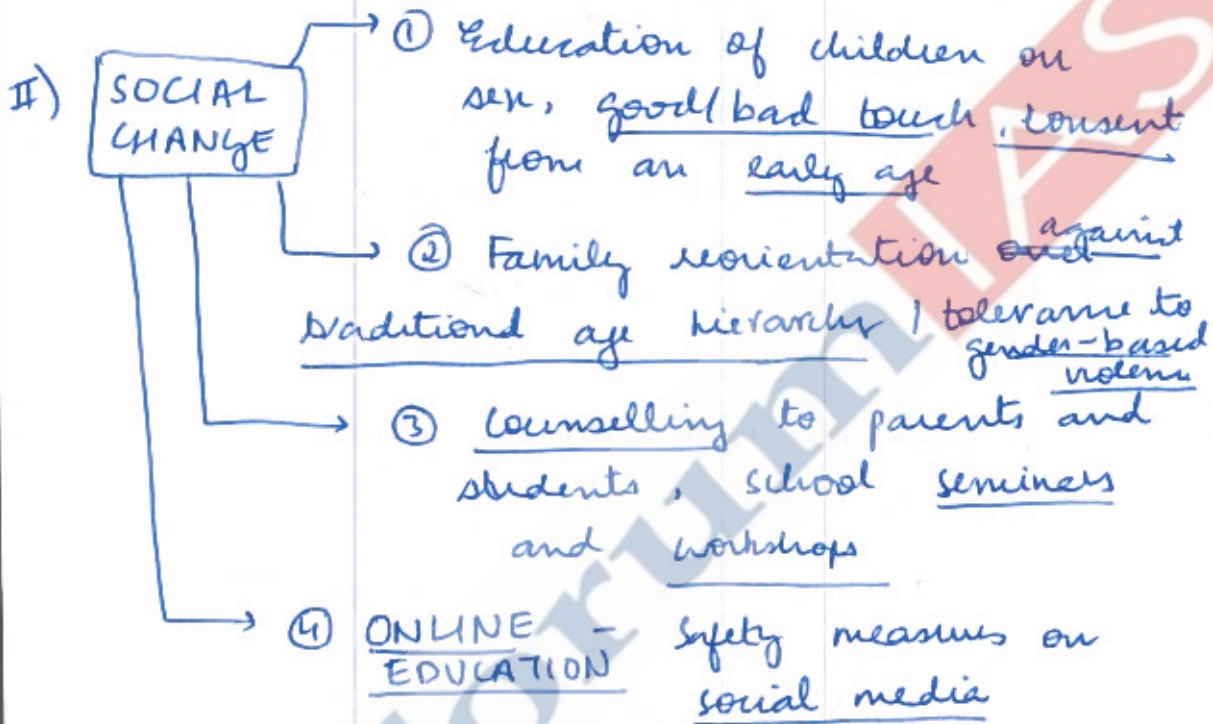 II) SOCIAL CHANGE
① Education of children on
sex, good/bad touch, consent
from an early age
② Family reorientation against
traditional age hierarchy / tolerance to
gender-based
violence
③ Counselling to parents and
students, school seminars
and workshops
④ ONLINE EDUCATION - Safety measures on
social media
forumIAS